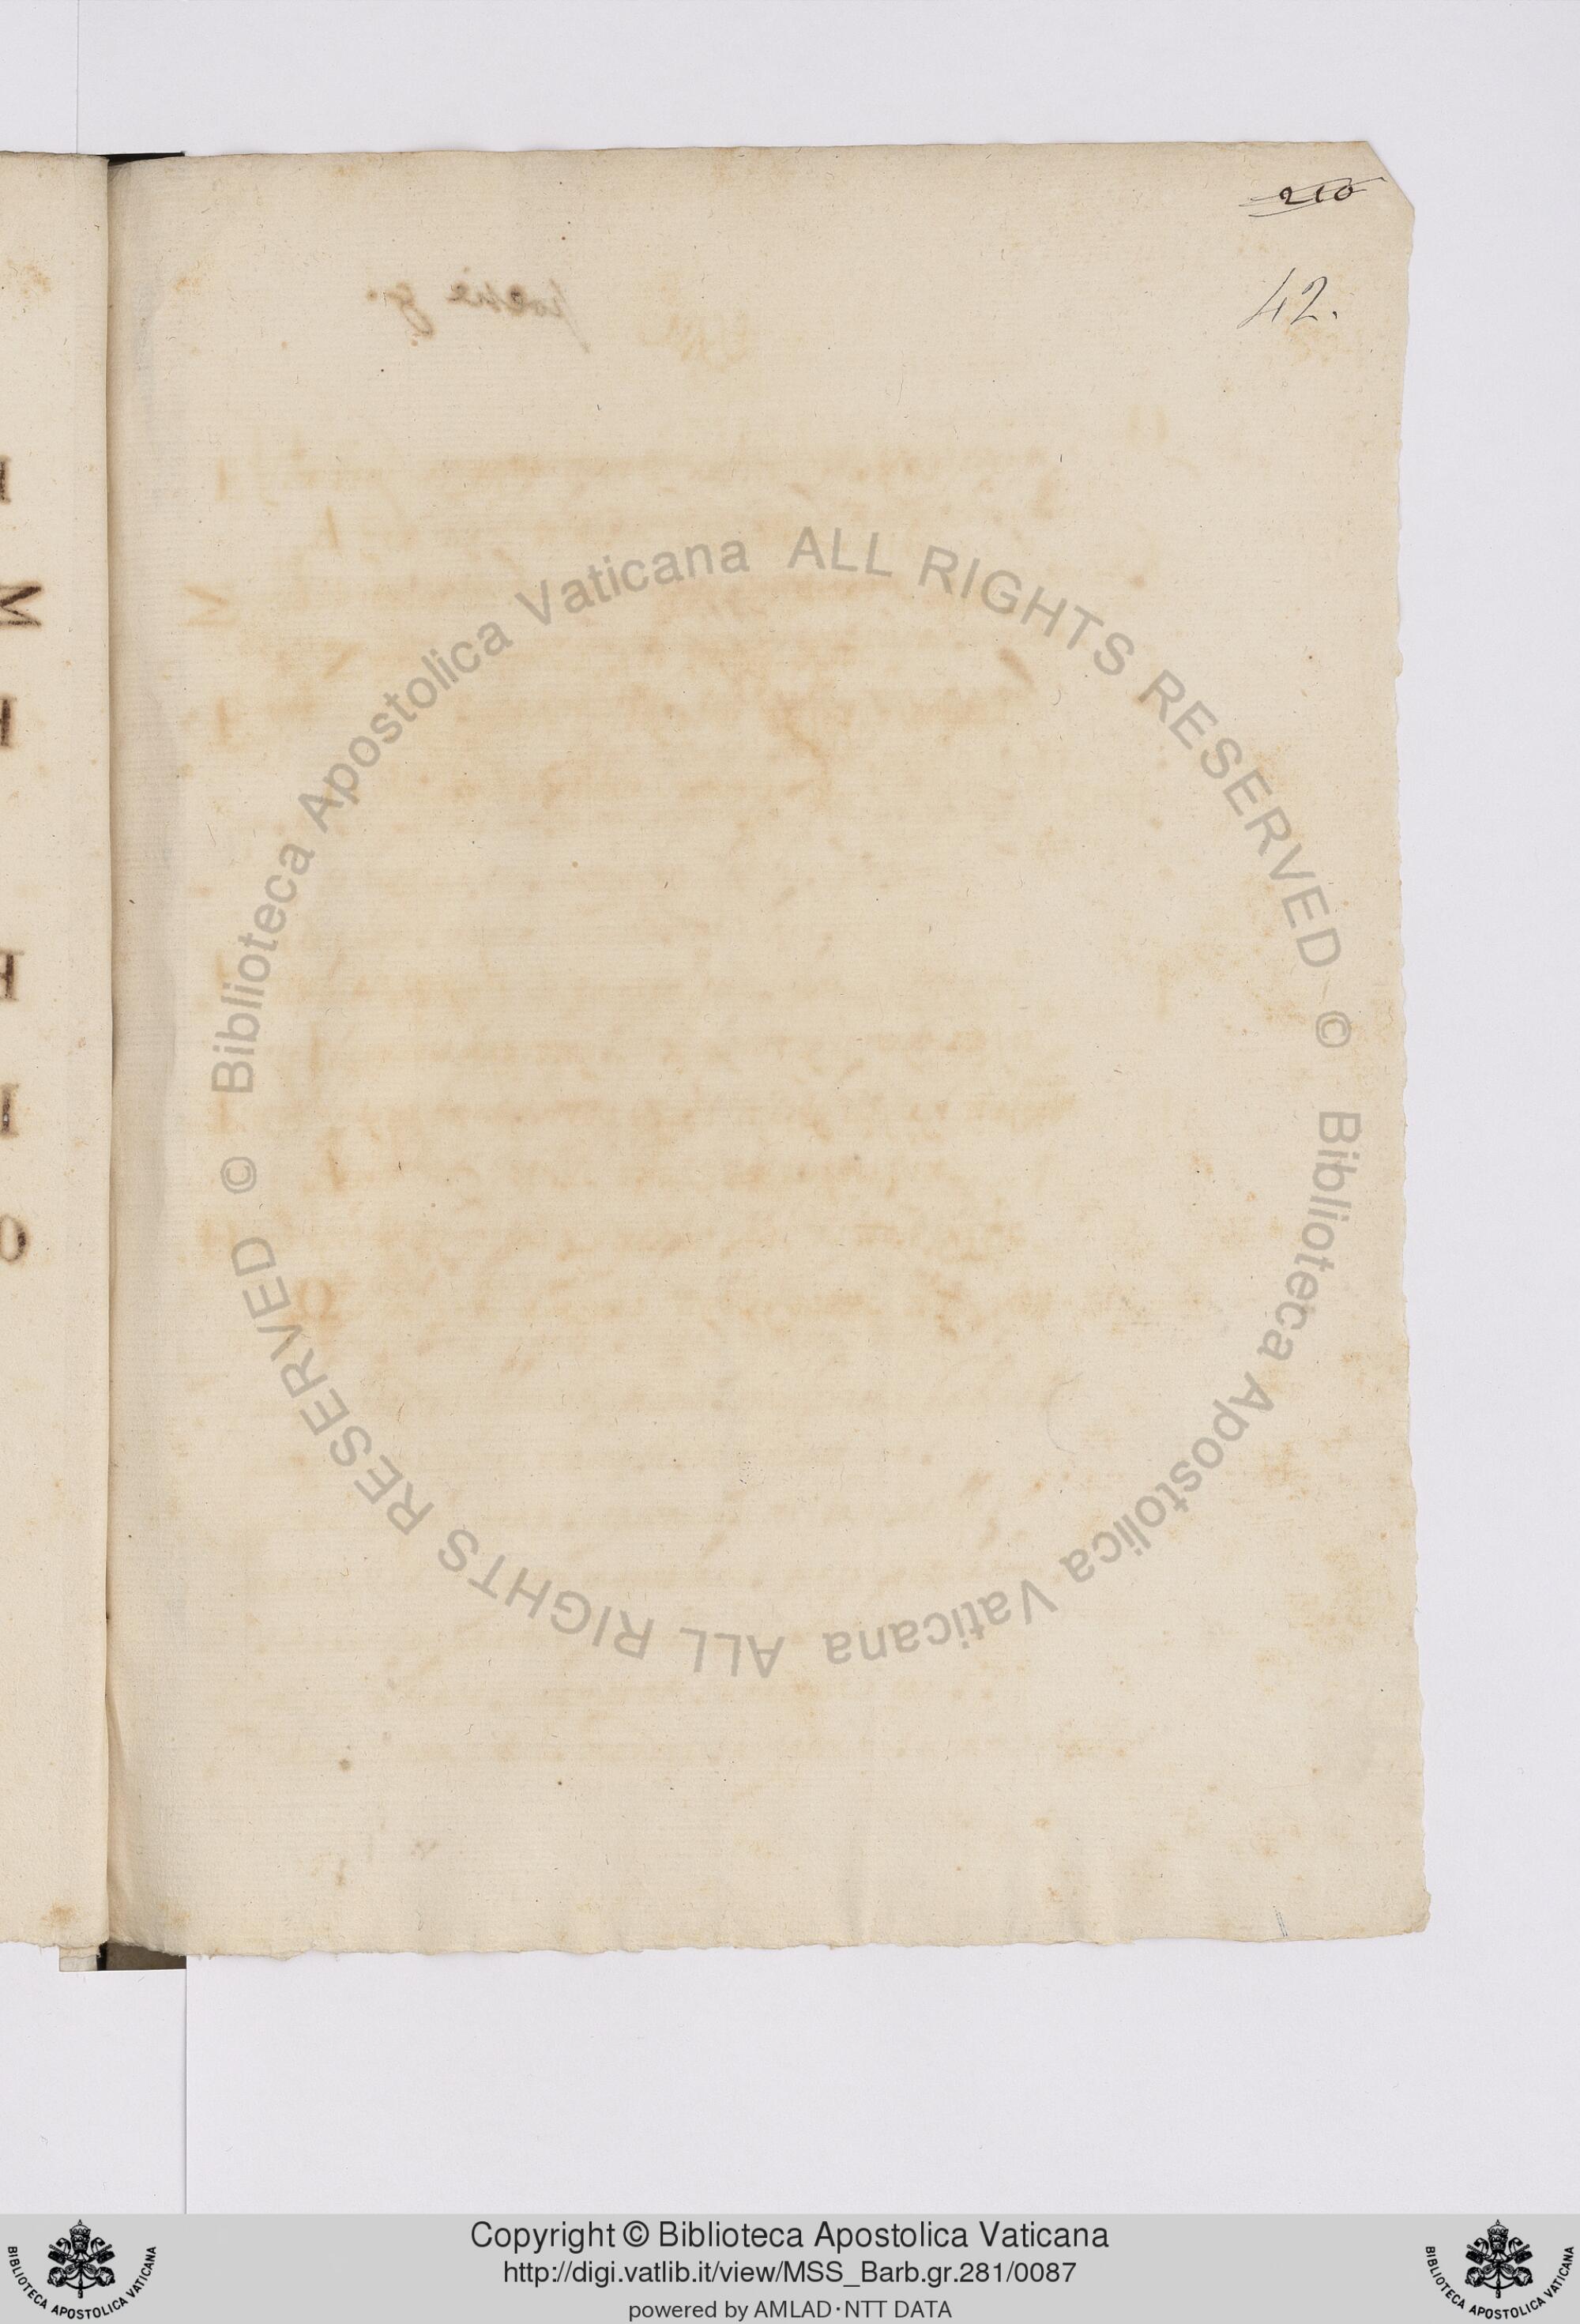 210
42.
I
M
I
H
I
O
© Biblioteca Apostolica Vaticana ALL RIGHTS RESERVED
© Biblioteca Apostolica Vaticana ALL RIGHTS RESERVED
Copyright © Biblioteca Apostolica Vaticana
http://digi.vatlib.it/view/MSS_Barb.gr.281/0087
powered by AMLAD·NTT DATA
BIBLIOTECA APOSTOLICA VATICANA
BIBLIOTECA APOSTOLICA VATICANA